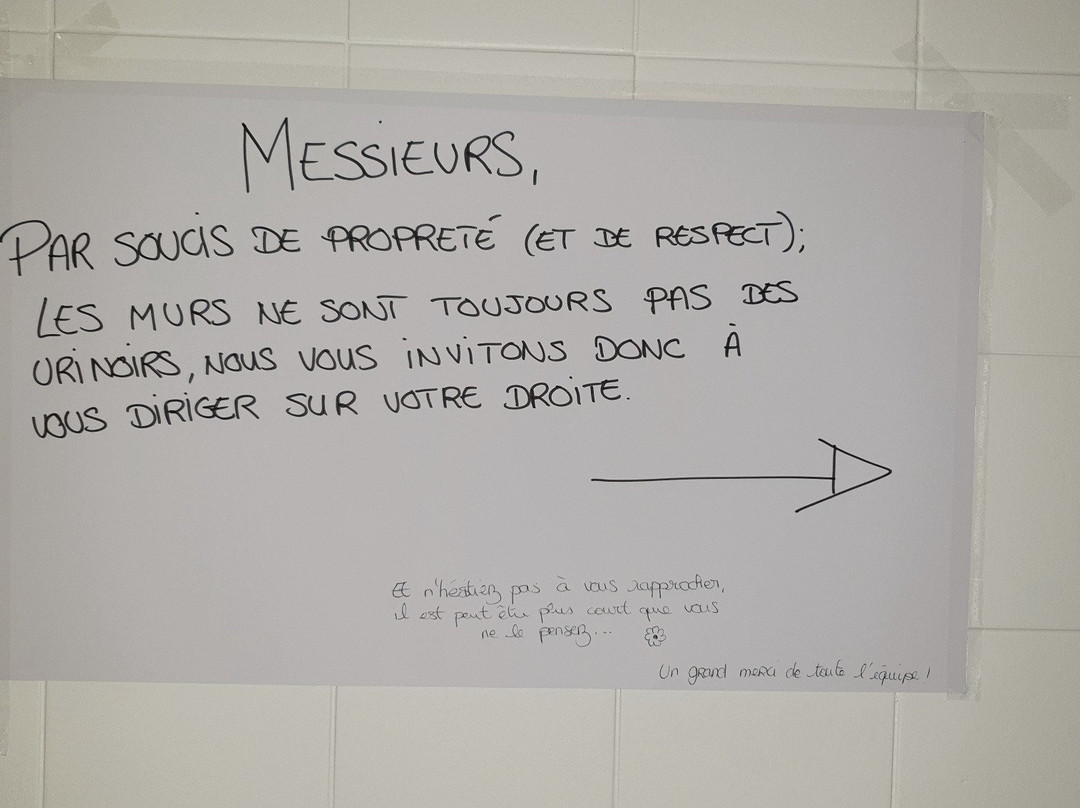 MESSIEURS,
PAR SOUCIS DE PROPRETÉ (ET DE RESPECT);
LES MURS NE SONT TOUJOURS PAS DES
URINOIRS, NOUS VOUS INVITONS DONC À
VOUS DIRIGER SUR VOTRE DROITE.
Et n'hésitez pas à vous rapprocher,
il est peut être plus court que vous
ne le pensez...
Un grand merci de toute l'équipe !